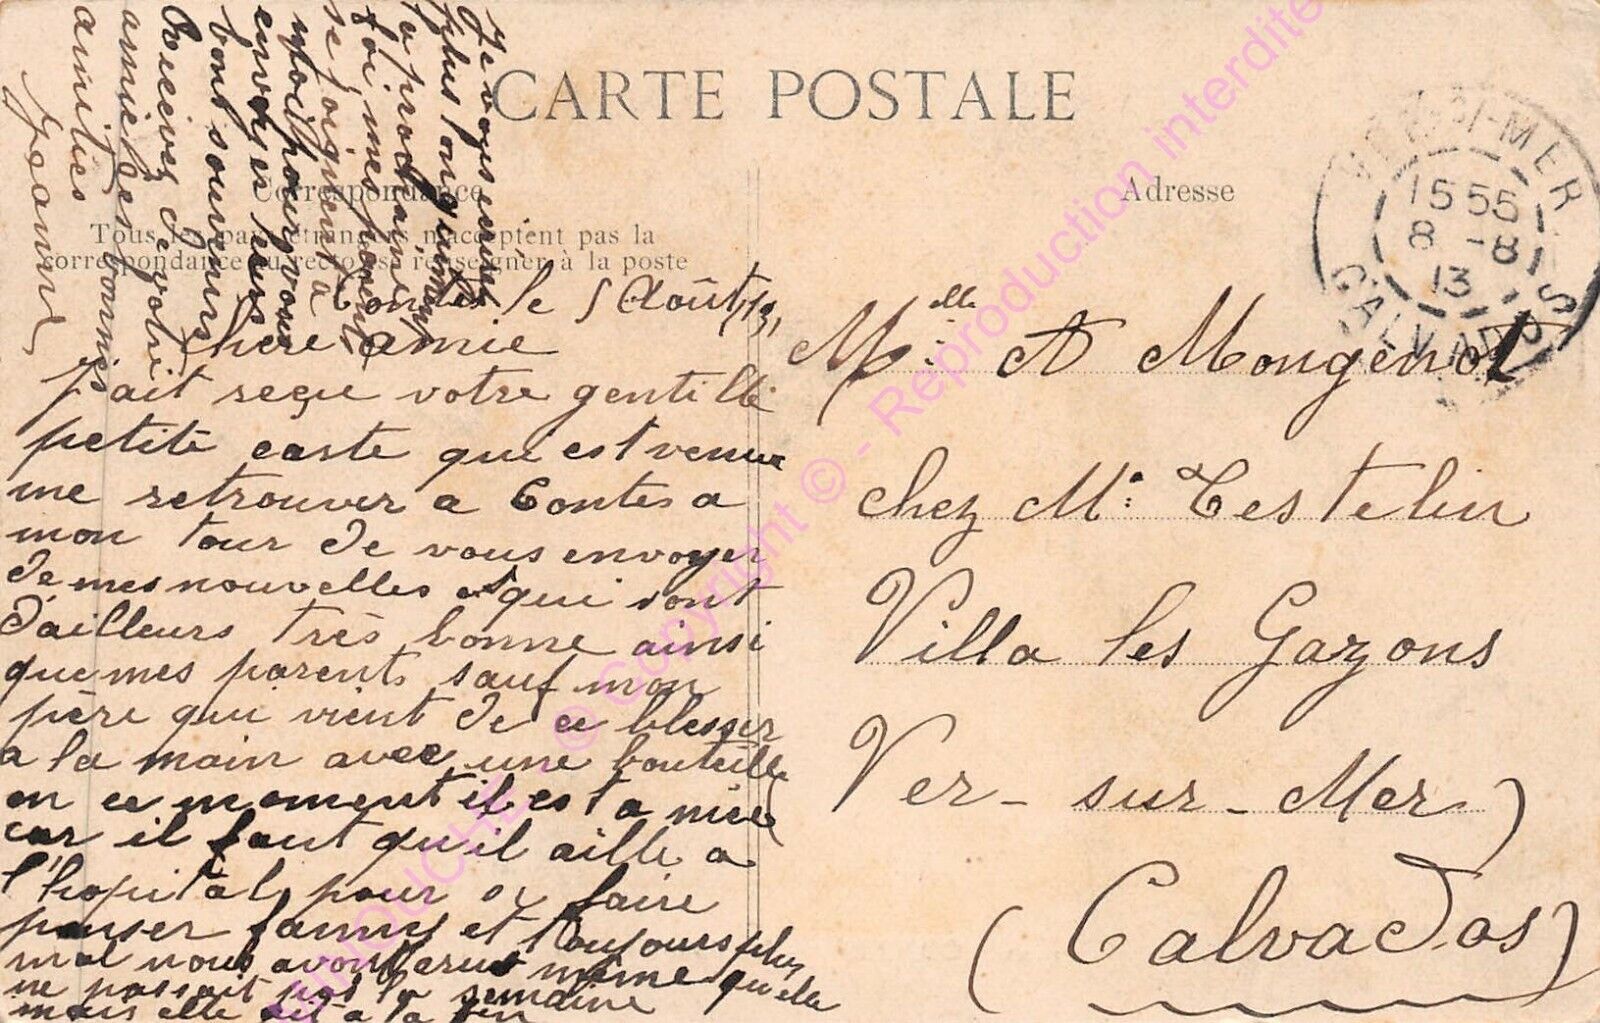 CARTE POSTALE
Correspondance
Tous les pays étrangers n'acceptent pas la
correspondance au recto, se renseigner à la poste
Adresse
VER-S-MER
15 55
8 -8
13
CALVADOS
Contes le 5 Août, 13,
Chere amie
J'ait reçu votre gentille
petite carte qui est venue
me retrouver a Contes a
mon tour de vous envoyer
de mes nouvelles et qui sont
d'ailleurs très bonne ainsi
que mes parents sauf mon
père qui vient de ce blesser
a la main avec une bouteille
en ce moment il est a nice
car il faut qu'il aille a
l'hopital pour se faire
panser fanny et toujours plus
mal nous avons crus même qu'elle
ne passait pas la semaine
mais elle ait a la fin
Je vous ecrirez
plus longuement
a prochaine
foi, mes parents
se joignent a
moi pour vous
envoyer leurs
bons souvenirs
Recevez de votre
amie les bonnes
amitiés
Jeanne
Melle A Mongenot
chez Mr. Testelin
Villa les Gazons
Ver-sur-Mer
(Calvados)
© PHOTOUCHE - © Copyright © - Reproduction interdite